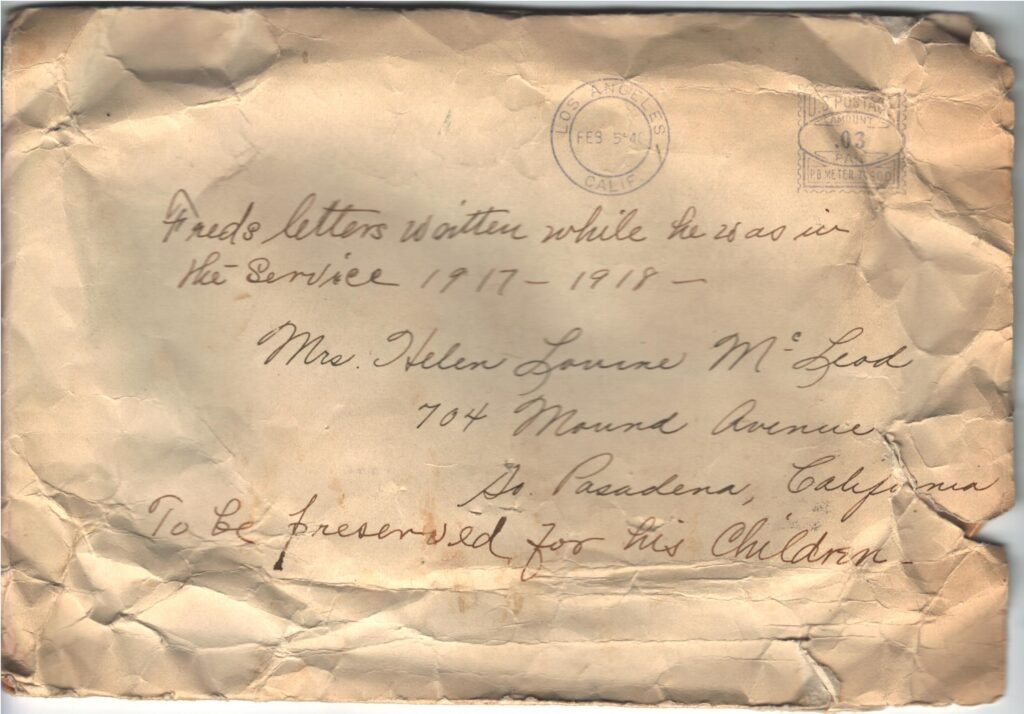 LOS ANGELES
FEB 5-40
CALIF.
U.S. POSTAGE
AMOUNT
.03
PAID
P.B. METER
Freds letters written while he was in
the Service 1917 - 1918 -
Mrs. Helen Lovine McLeod
704 Mound Avenue
So. Pasadena, California
To be preserved for his Children -